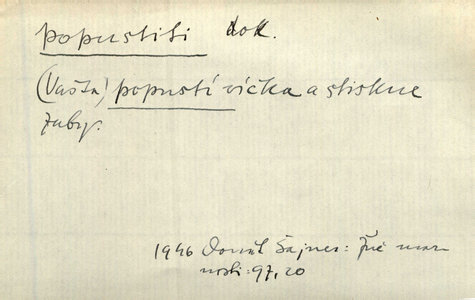 popustiti dok.
(Vašta) popustí víčka a stiskne
zuby.
1946 Donát Šajner: Žně mar
nosti: 97,20